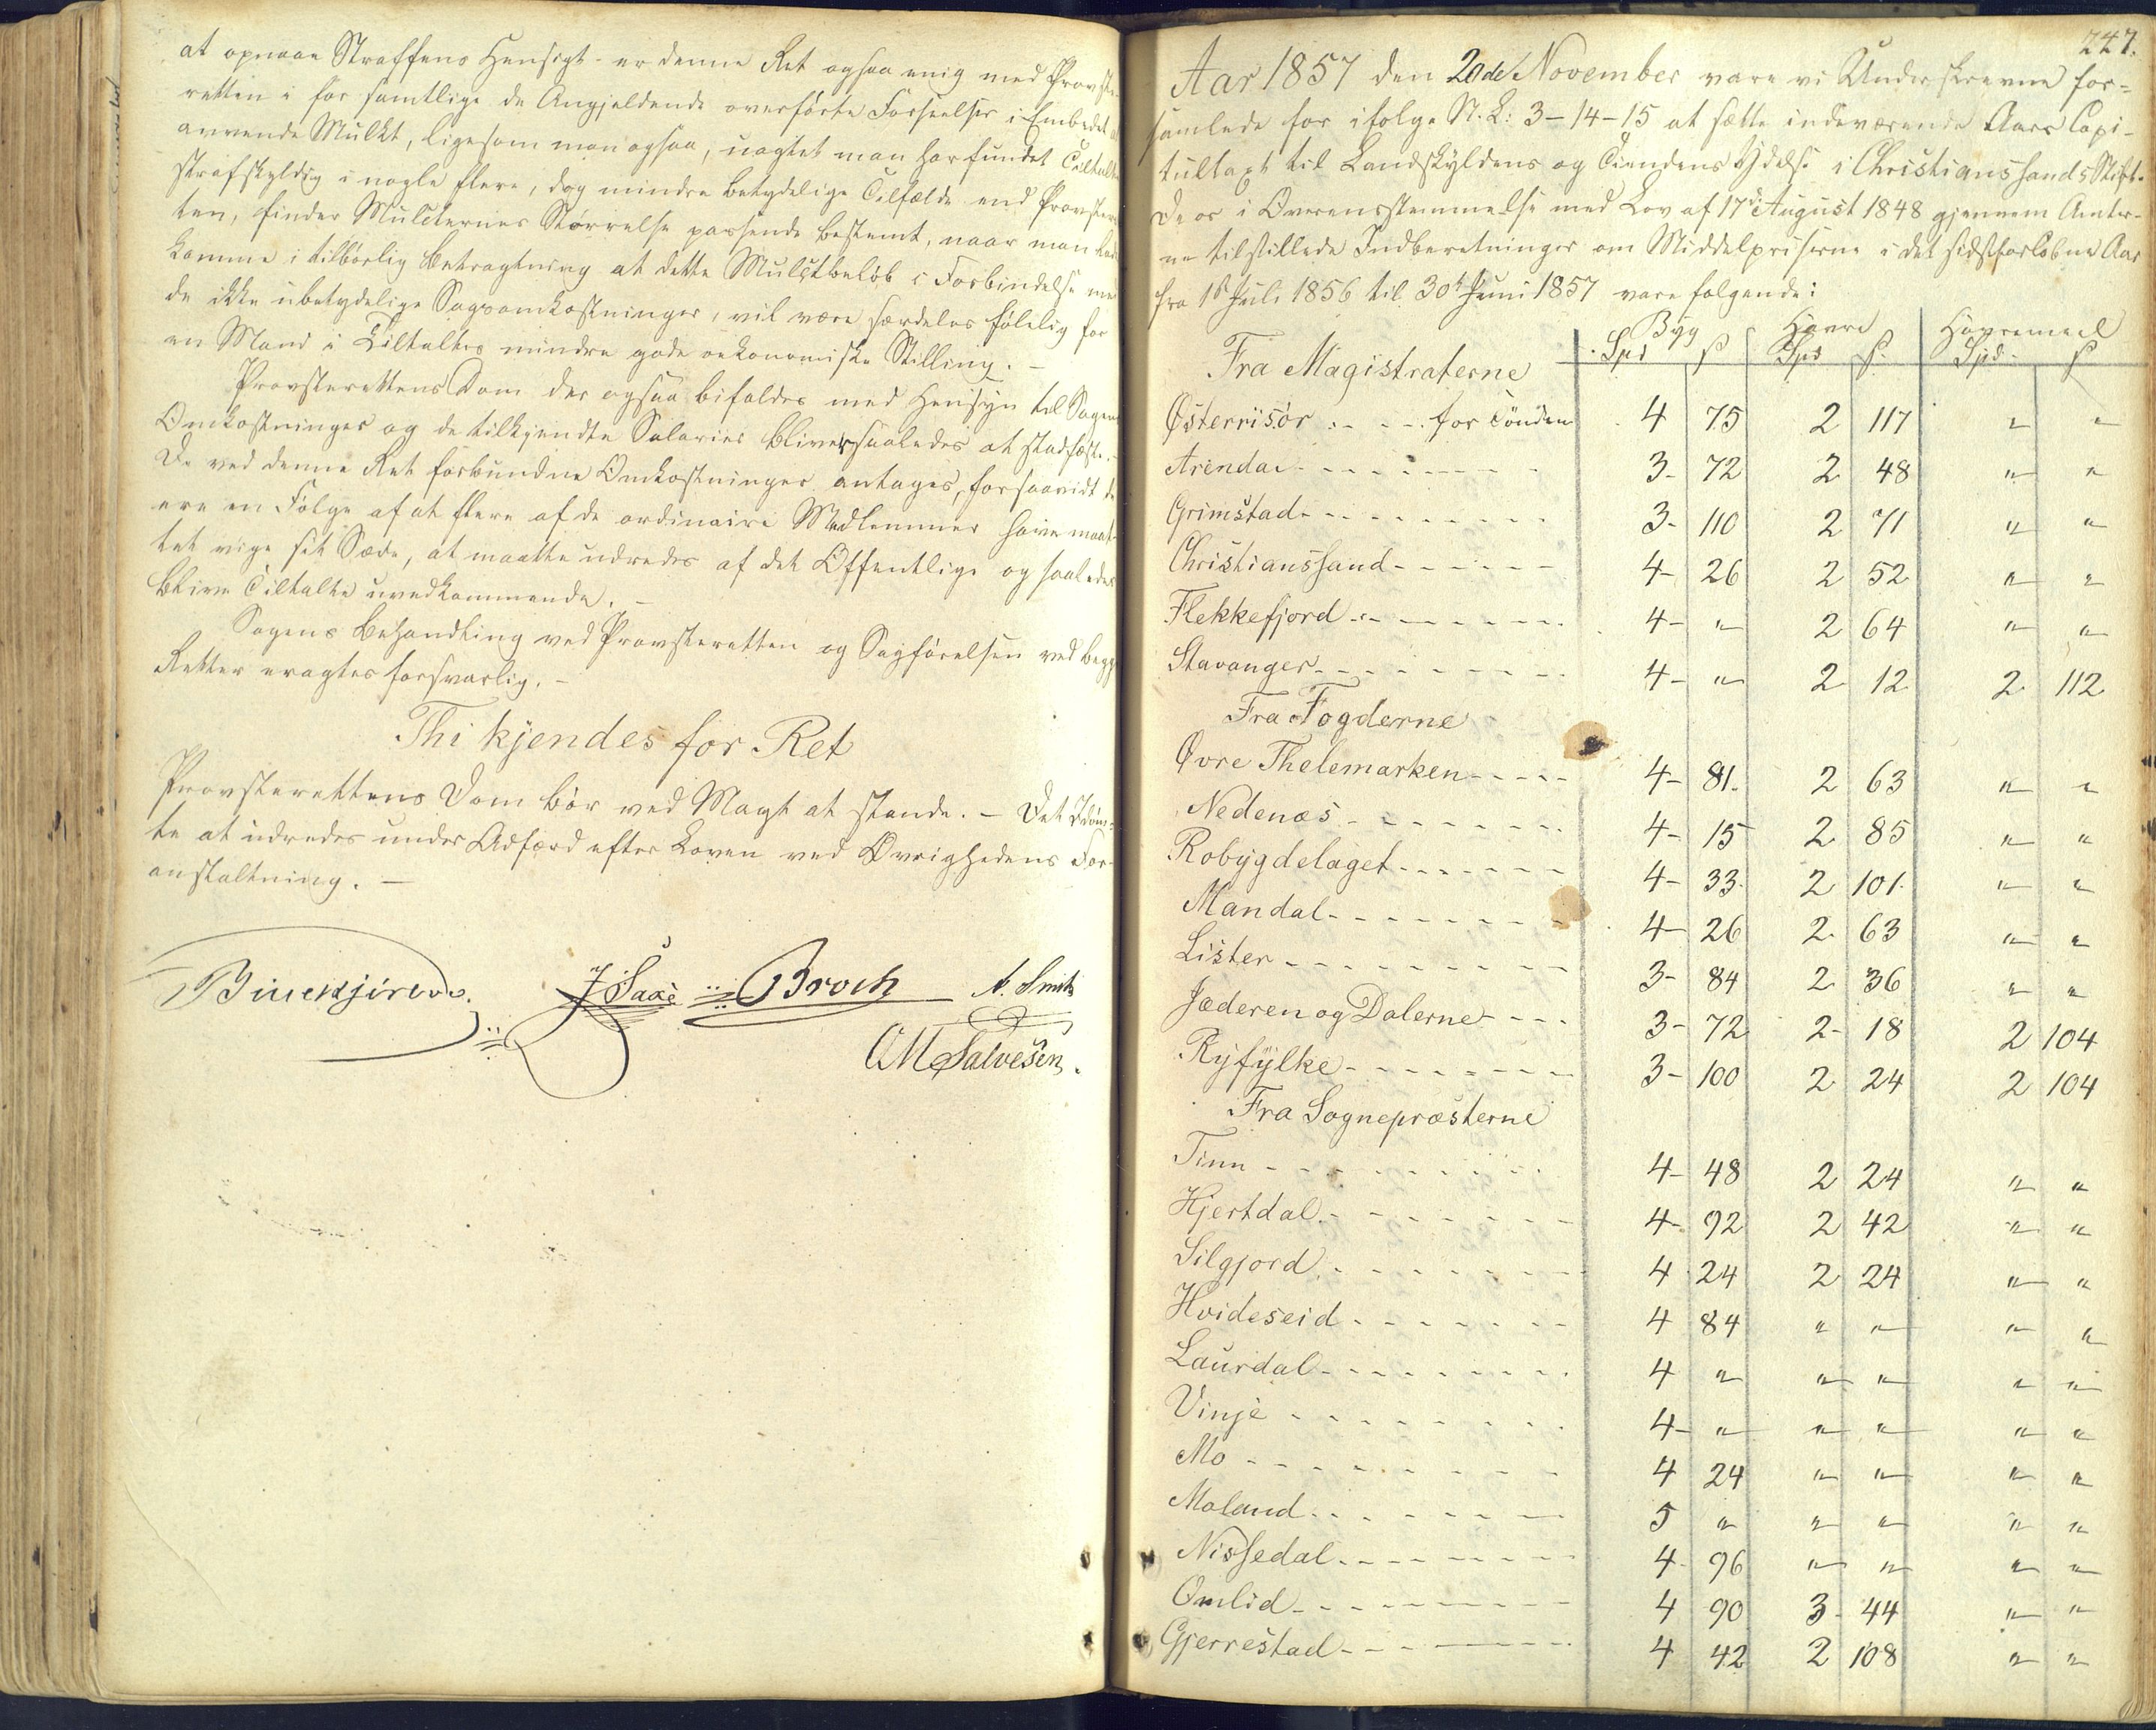 at opnaae Straffens Hensigt - er denne Ret ogsaa enig med Provste-
retten i for samtlige de Angjeldende overførte Forseelser i Embedet at
anvende Mulkt, ligesom man ogsaa, uagtet man har fundet Tiltalte
strafskyldig i nogle flere, dog mindre betydelige Tilfælde end Provsteret-
ten, finder Mulcternes Størrelse passende bestemt, naar man lader
komme i tilbørlig Betragtning at dette Mulctbeløb i Forbindelse med
de ikke ubetydelige Sagsomkostninger, vil være særdeles følelig for
en Mand i Tiltaltes mindre gode oekonomiske Stilling. -
Provsterettens Dom der ogsaa bifaldes med Hensyn til Sagens
Omkostninger og de tilkjendte Salarier bliver saaledes at stadfæste. -
De ved denne Ret forbundne Omkostninger antages, forsaavidt de
ere en Følge af at flere af de ordinaire Medlemmer have maat-
tet vige sit Sæde, at maatte udredes af det Offentlige og saaledes
blive Tiltalte uvedkommende. -
Sagens Behandling ved Provsteretten og Sagførelsen ved begge
Retter eragtes forsvarlig. -
Thi kjendes for Ret
Provsterettens Dom bør ved Magt at stande. - Det Idøm-
te at udredes under Adfærd efter Loven ved Øvrighedens For-
anstaltning. -
J Saxe Broch A. Smith
CM Salvesen.
247.
Aar 1857 den 20de November vare vi Underskrevne for-
samlede for ifølge N. L: 3-14-15 at sætte indeværende Aars Capi-
tultaxt til Landskyldens og Tiendens Ydelse i Christianssands Stift.
De os i Overensstemmelse med Lov af 17de August 1848 gjennem Amter-
ne tilstillede Indberetninger om Middelpriserne i det sidstforløbne Aar
fra 1ste Juli 1856 til 30te Juni 1857 vare følgende:
Byg Havre Havremeel
Fra Magistraterne Spd ß Spd ß. Spd. ß
Østerriisör - - - for Tönden 4 75 2 117 " "
Arendal - - - - 3- 72 2 48 " "
Grimstad - - - - 3- 110 2 71 " "
Christianssand - - - - 4- 26 2 52 " "
Flekkefjord - - - - 4- " 2 64 " "
Stavanger - - - - 4- " 2 12 2 112
Fra Fogderne
Øvre Thelemarken - - - - 4- 81. 2 63 " "
Nedenæs - - - - 4- 15 2 85 " "
Robygdelaget - - - - 4- 33. 2 101. " "
Mandal - - - - 4- 26 2. 63 " "
Lister - - - - 3- 84 2 36 " "
Jæderen og Dalerne - - - 3- 72 2- 18 2 104
Ryfylke - - - - 3- 100 2 24 2 104
Fra Sognepræsterne
Tinn - - - - 4- 48 2 24 " "
Hjertdal - - - - 4- 92 2 42 " "
Silgjord - - - - 4 24 2 24 " "
Hvideseid - - - - 4 84 " " " "
Laurdal - - - - 4 " " " " "
Vinje - - - - 4- " " " " "
Mo - - - - 4 24 " " " "
Moland - - - - 5 " " " " "
Nissedal - - - - 4- 96 " " " "
Omlid - - - - 4 90 3- 44 " "
Gjerrestad - - - - 4 42 2 108 " "